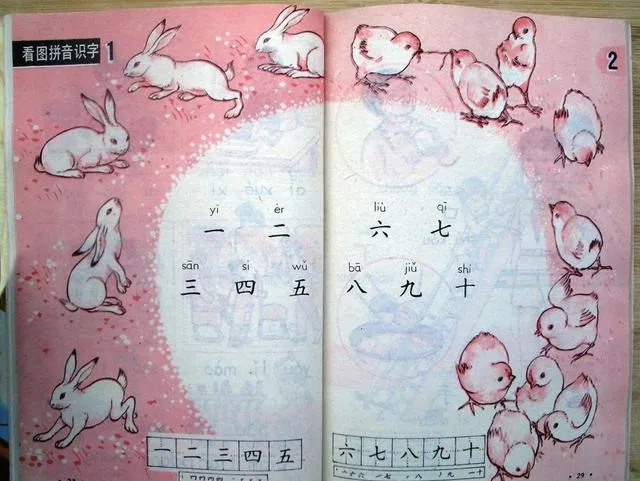 看图拼音识字 1
yī èr
一 二
sān sì wǔ
三 四 五
一 二 三 四 五
2
liù qī
六 七
bā jiǔ shí
八 九 十
六 七 八 九 十
· 29 ·